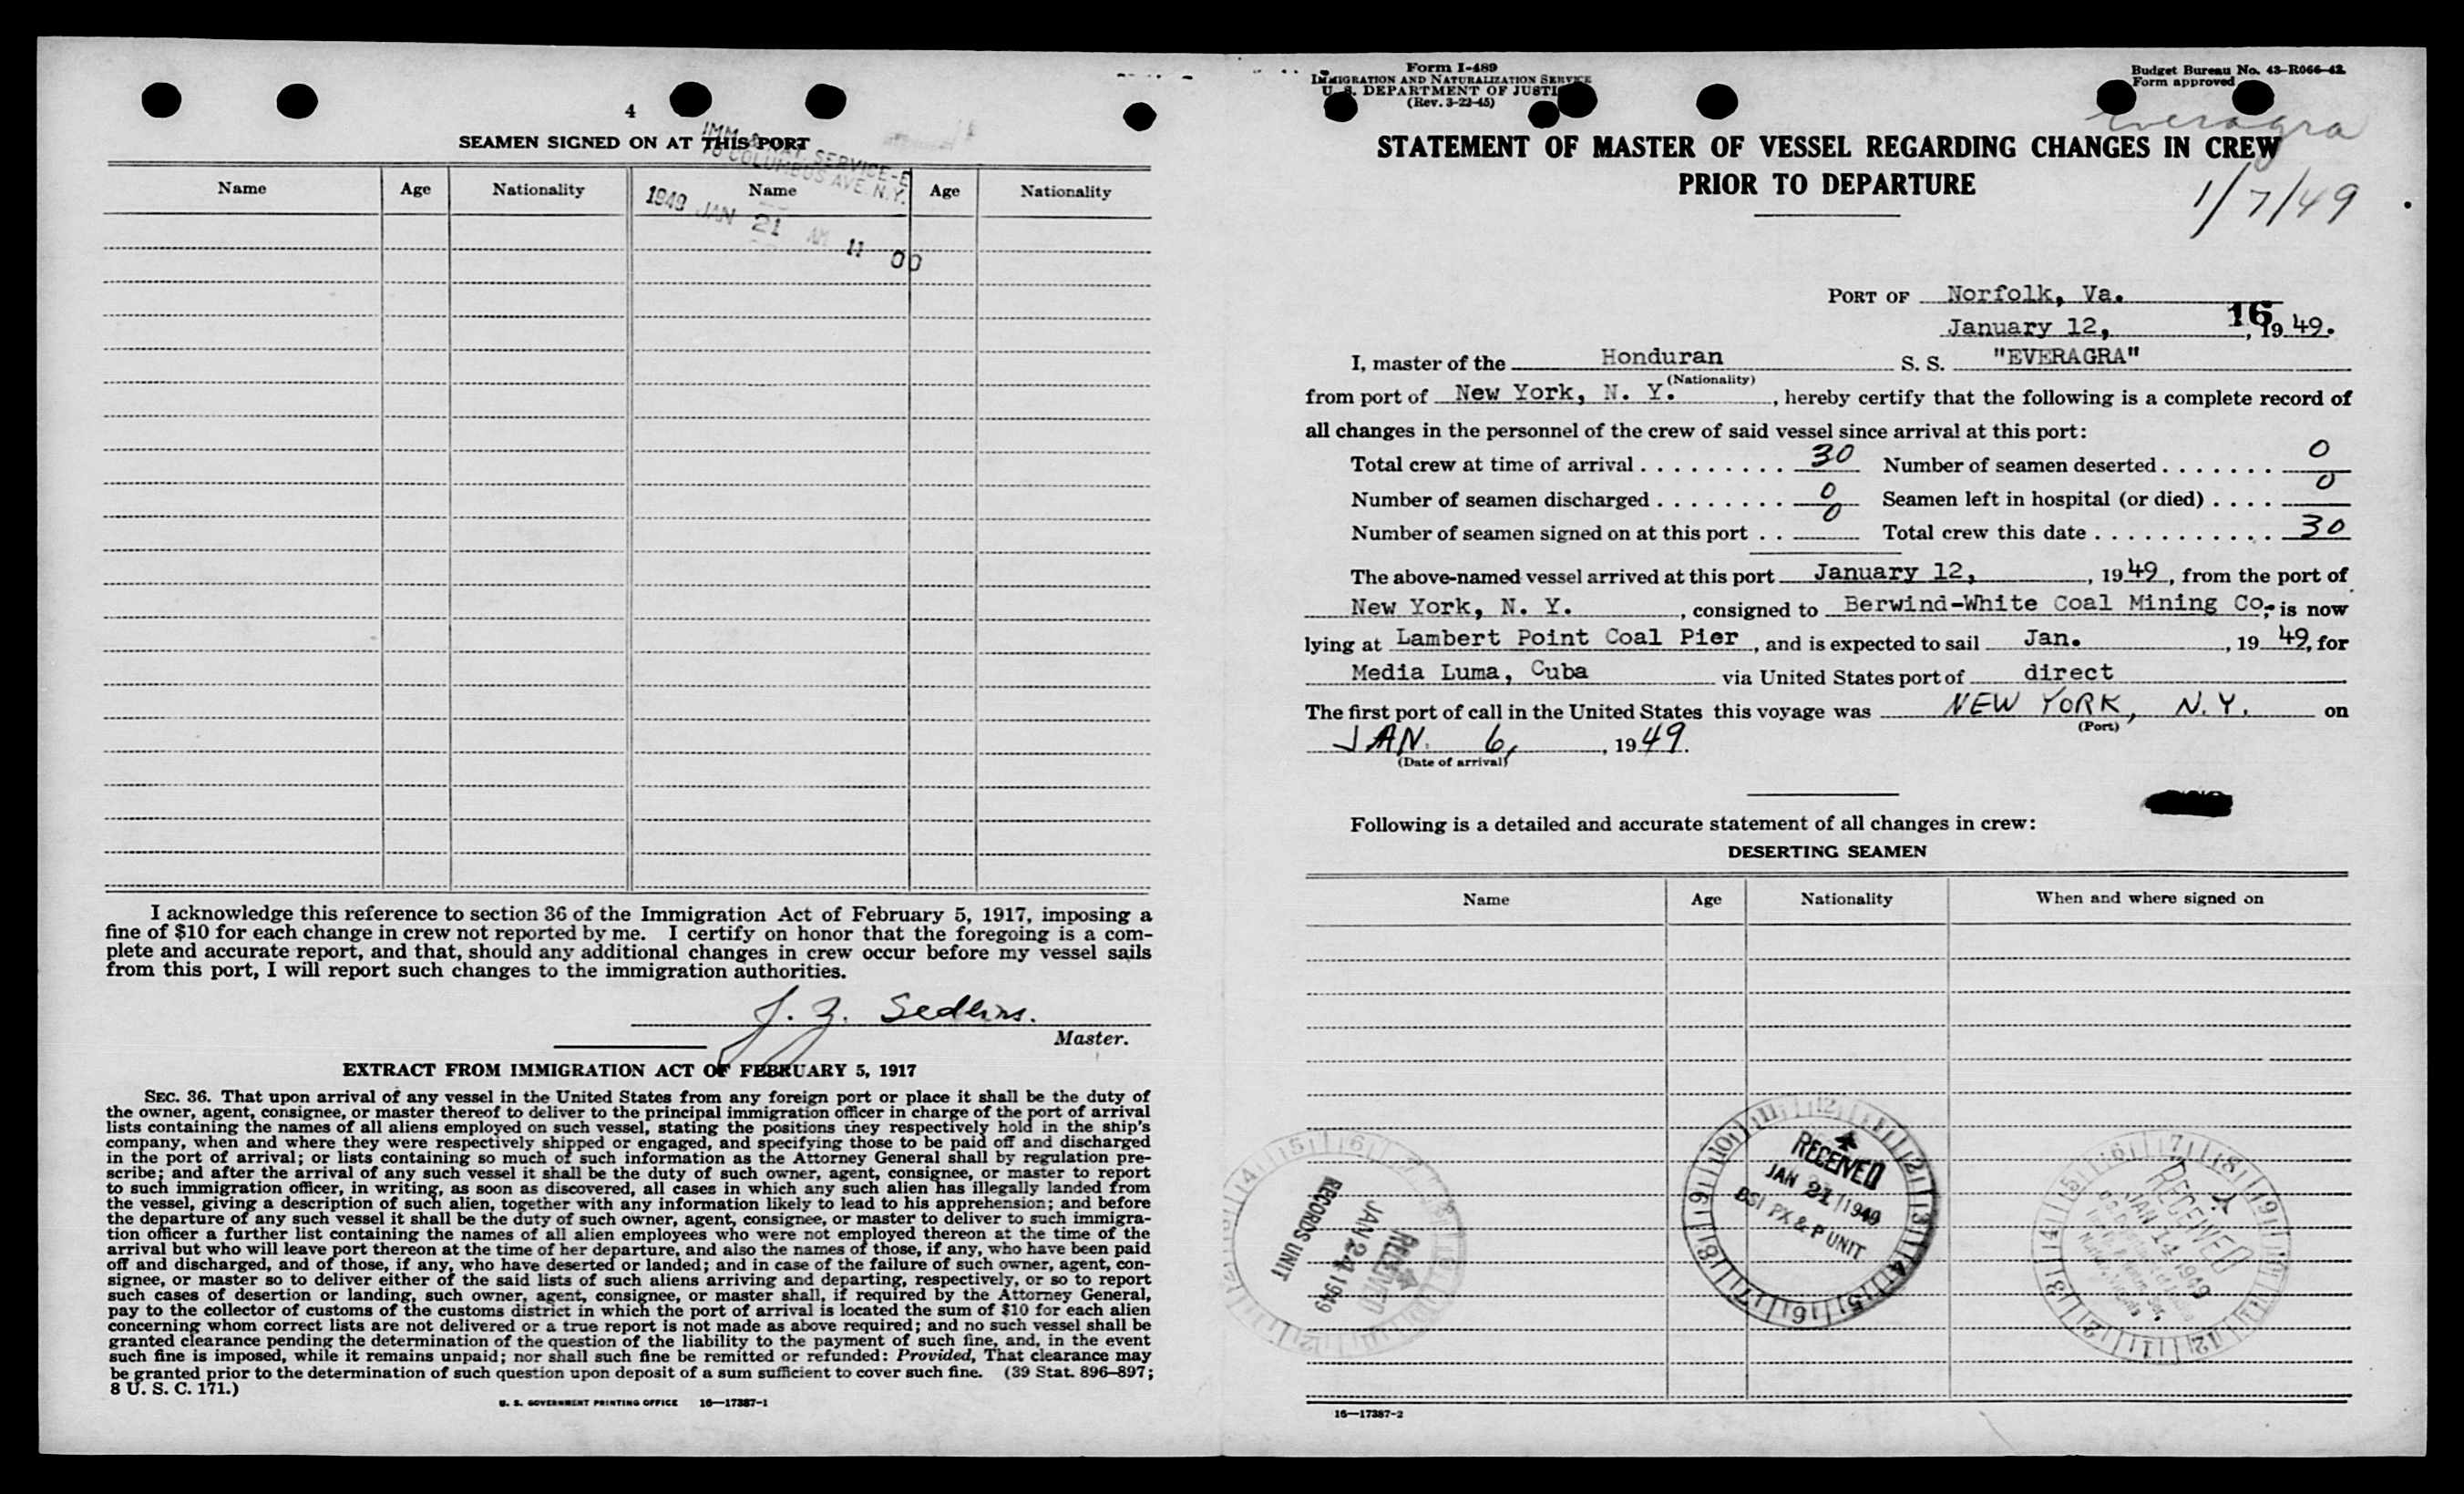 4
SEAMEN SIGNED ON AT THIS PORT
IMM. & NAT. SERVICE-E
70 COLUMBUS AVE. N.Y.
1949 JAN 21 AM 11 00
Name Age Nationality Name Age Nationality
I acknowledge this reference to section 36 of the Immigration Act of February 5, 1917, imposing a
fine of $10 for each change in crew not reported by me. I certify on honor that the foregoing is a com-
plete and accurate report, and that, should any additional changes in crew occur before my vessel sails
from this port, I will report such changes to the immigration authorities.
J. Z. Sedlins.
Master.
EXTRACT FROM IMMIGRATION ACT OF FEBRUARY 5, 1917
SEC. 36. That upon arrival of any vessel in the United States from any foreign port or place it shall be the duty of
the owner, agent, consignee, or master thereof to deliver to the principal immigration officer in charge of the port of arrival
lists containing the names of all aliens employed on such vessel, stating the positions they respectively hold in the ship's
company, when and where they were respectively shipped or engaged, and specifying those to be paid off and discharged
in the port of arrival; or lists containing so much of such information as the Attorney General shall by regulation pre-
scribe; and after the arrival of any such vessel it shall be the duty of such owner, agent, consignee, or master to report
to such immigration officer, in writing, as soon as discovered, all cases in which any such alien has illegally landed from
the vessel, giving a description of such alien, together with any information likely to lead to his apprehension; and before
the departure of any such vessel it shall be the duty of such owner, agent, consignee, or master to deliver to such immigra-
tion officer a further list containing the names of all alien employees who were not employed thereon at the time of the
arrival but who will leave port thereon at the time of her departure, and also the names of those, if any, who have been paid
off and discharged, and of those, if any, who have deserted or landed; and in case of the failure of such owner, agent, con-
signee, or master so to deliver either of the said lists of such aliens arriving and departing, respectively, or so to report
such cases of desertion or landing, such owner, agent, consignee, or master shall, if required by the Attorney General,
pay to the collector of customs of the customs district in which the port of arrival is located the sum of $10 for each alien
concerning whom correct lists are not delivered or a true report is not made as above required; and no such vessel shall be
granted clearance pending the determination of the question of the liability to the payment of such fine, and, in the event
such fine is imposed, while it remains unpaid; nor shall such fine be remitted or refunded: Provided, That clearance may
be granted prior to the determination of such question upon deposit of a sum sufficient to cover such fine. (39 Stat. 896–897;
8 U. S. C. 171.)
U. S. GOVERNMENT PRINTING OFFICE 16—17387-1
Form I-489
IMMIGRATION AND NATURALIZATION SERVICE
U. S. DEPARTMENT OF JUSTI
(Rev. 3-22-45)
Budget Bureau No. 43-R066-42
Form approved
Everagra
1/7/49
STATEMENT OF MASTER OF VESSEL REGARDING CHANGES IN CREW
PRIOR TO DEPARTURE
PORT OF Norfolk, Va.
January 12, 16, 1949.
I, master of the Honduran S. S. "EVERAGRA"
(Nationality)
from port of New York, N. Y., hereby certify that the following is a complete record of
all changes in the personnel of the crew of said vessel since arrival at this port:
Total crew at time of arrival . . . . . . . . . . 30 Number of seamen deserted . . . . . . . 0
Number of seamen discharged . . . . . . . . 0 Seamen left in hospital (or died) . . . . 0
Number of seamen signed on at this port . . 0 Total crew this date . . . . . . . . . . . 30
The above-named vessel arrived at this port January 12, , 1949, from the port of
New York, N. Y. , consigned to Berwind-White Coal Mining Co., is now
lying at Lambert Point Coal Pier , and is expected to sail Jan. , 1949, for
Media Luma, Cuba via United States port of direct
The first port of call in the United States this voyage was NEW YORK, N.Y. on
(Port)
JAN. 6, , 1949.
(Date of arrival)
Following is a detailed and accurate statement of all changes in crew:
DESERTING SEAMEN
Name Age Nationality When and where signed on
RECEIVED
JAN 24 1949
RECORDS UNIT
RECEIVED
JAN 21 1949
BSI PX & P UNIT
RECEIVED
JAN 14 1949
16—17387-2